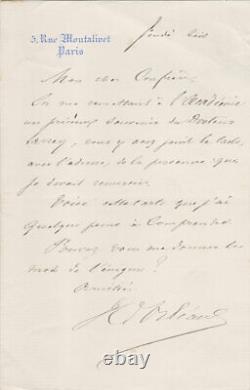 5, Rue Montalivet
Paris
Jeudi soir
Mon cher Confrère
On me remettant à l'Académie
un précieux souvenir du Docteur
Larrey, vous y avez joint la carte,
avec l'adresse, de la personne que
je devais remercier.
Voici cette carte que j'ai
quelque peine à comprendre.
Pouvez vous me donner les
mot de l'énigme ?
Amitiés
H d'Orléans